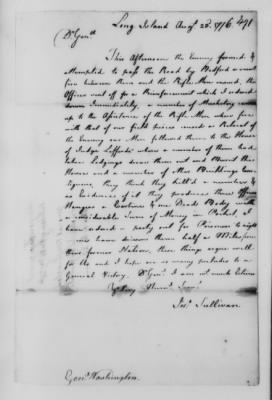 Long Island Augt 23d 1776
Dr Genll
This Afternoon the Enemy formed &
attempted to pass the Road by Bedford a smart
fire between them and the Rifle Men ensued, the
Officer sent off for a Reinforcement which I ordered
down Immediately, a number of Musketry came
up to the Assistance of the Rifle Men whose fire
with that of our field pieces caused a Retreat of
the Enemy our Men followed them to the House
of Judge Lefferts where a number of them had
taken Lodgings drove them out and Burnt the
House and a number of other Buildings Con-
tiguous, they think they killed a number &
as Evidence of it they produced three Officers
Hangers a Carbine & one Dead Body with
a considerable Sum of Money in Pocket, I
have ordered a party out for Prisoners to night
we have driven them half a Mile from
their former Station, these things argue well
for Us and I hope are so many preludes to a
General Victory. Dr Genll I am with much Esteem
Your very Humb Servt
Jno Sullivan
Genl Washington